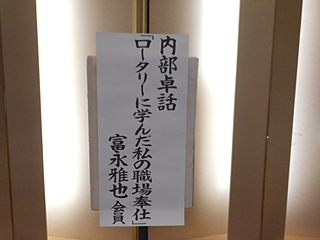 内部卓話
「ロータリーに学んだ私の職場奉仕」
富永雅也 会員